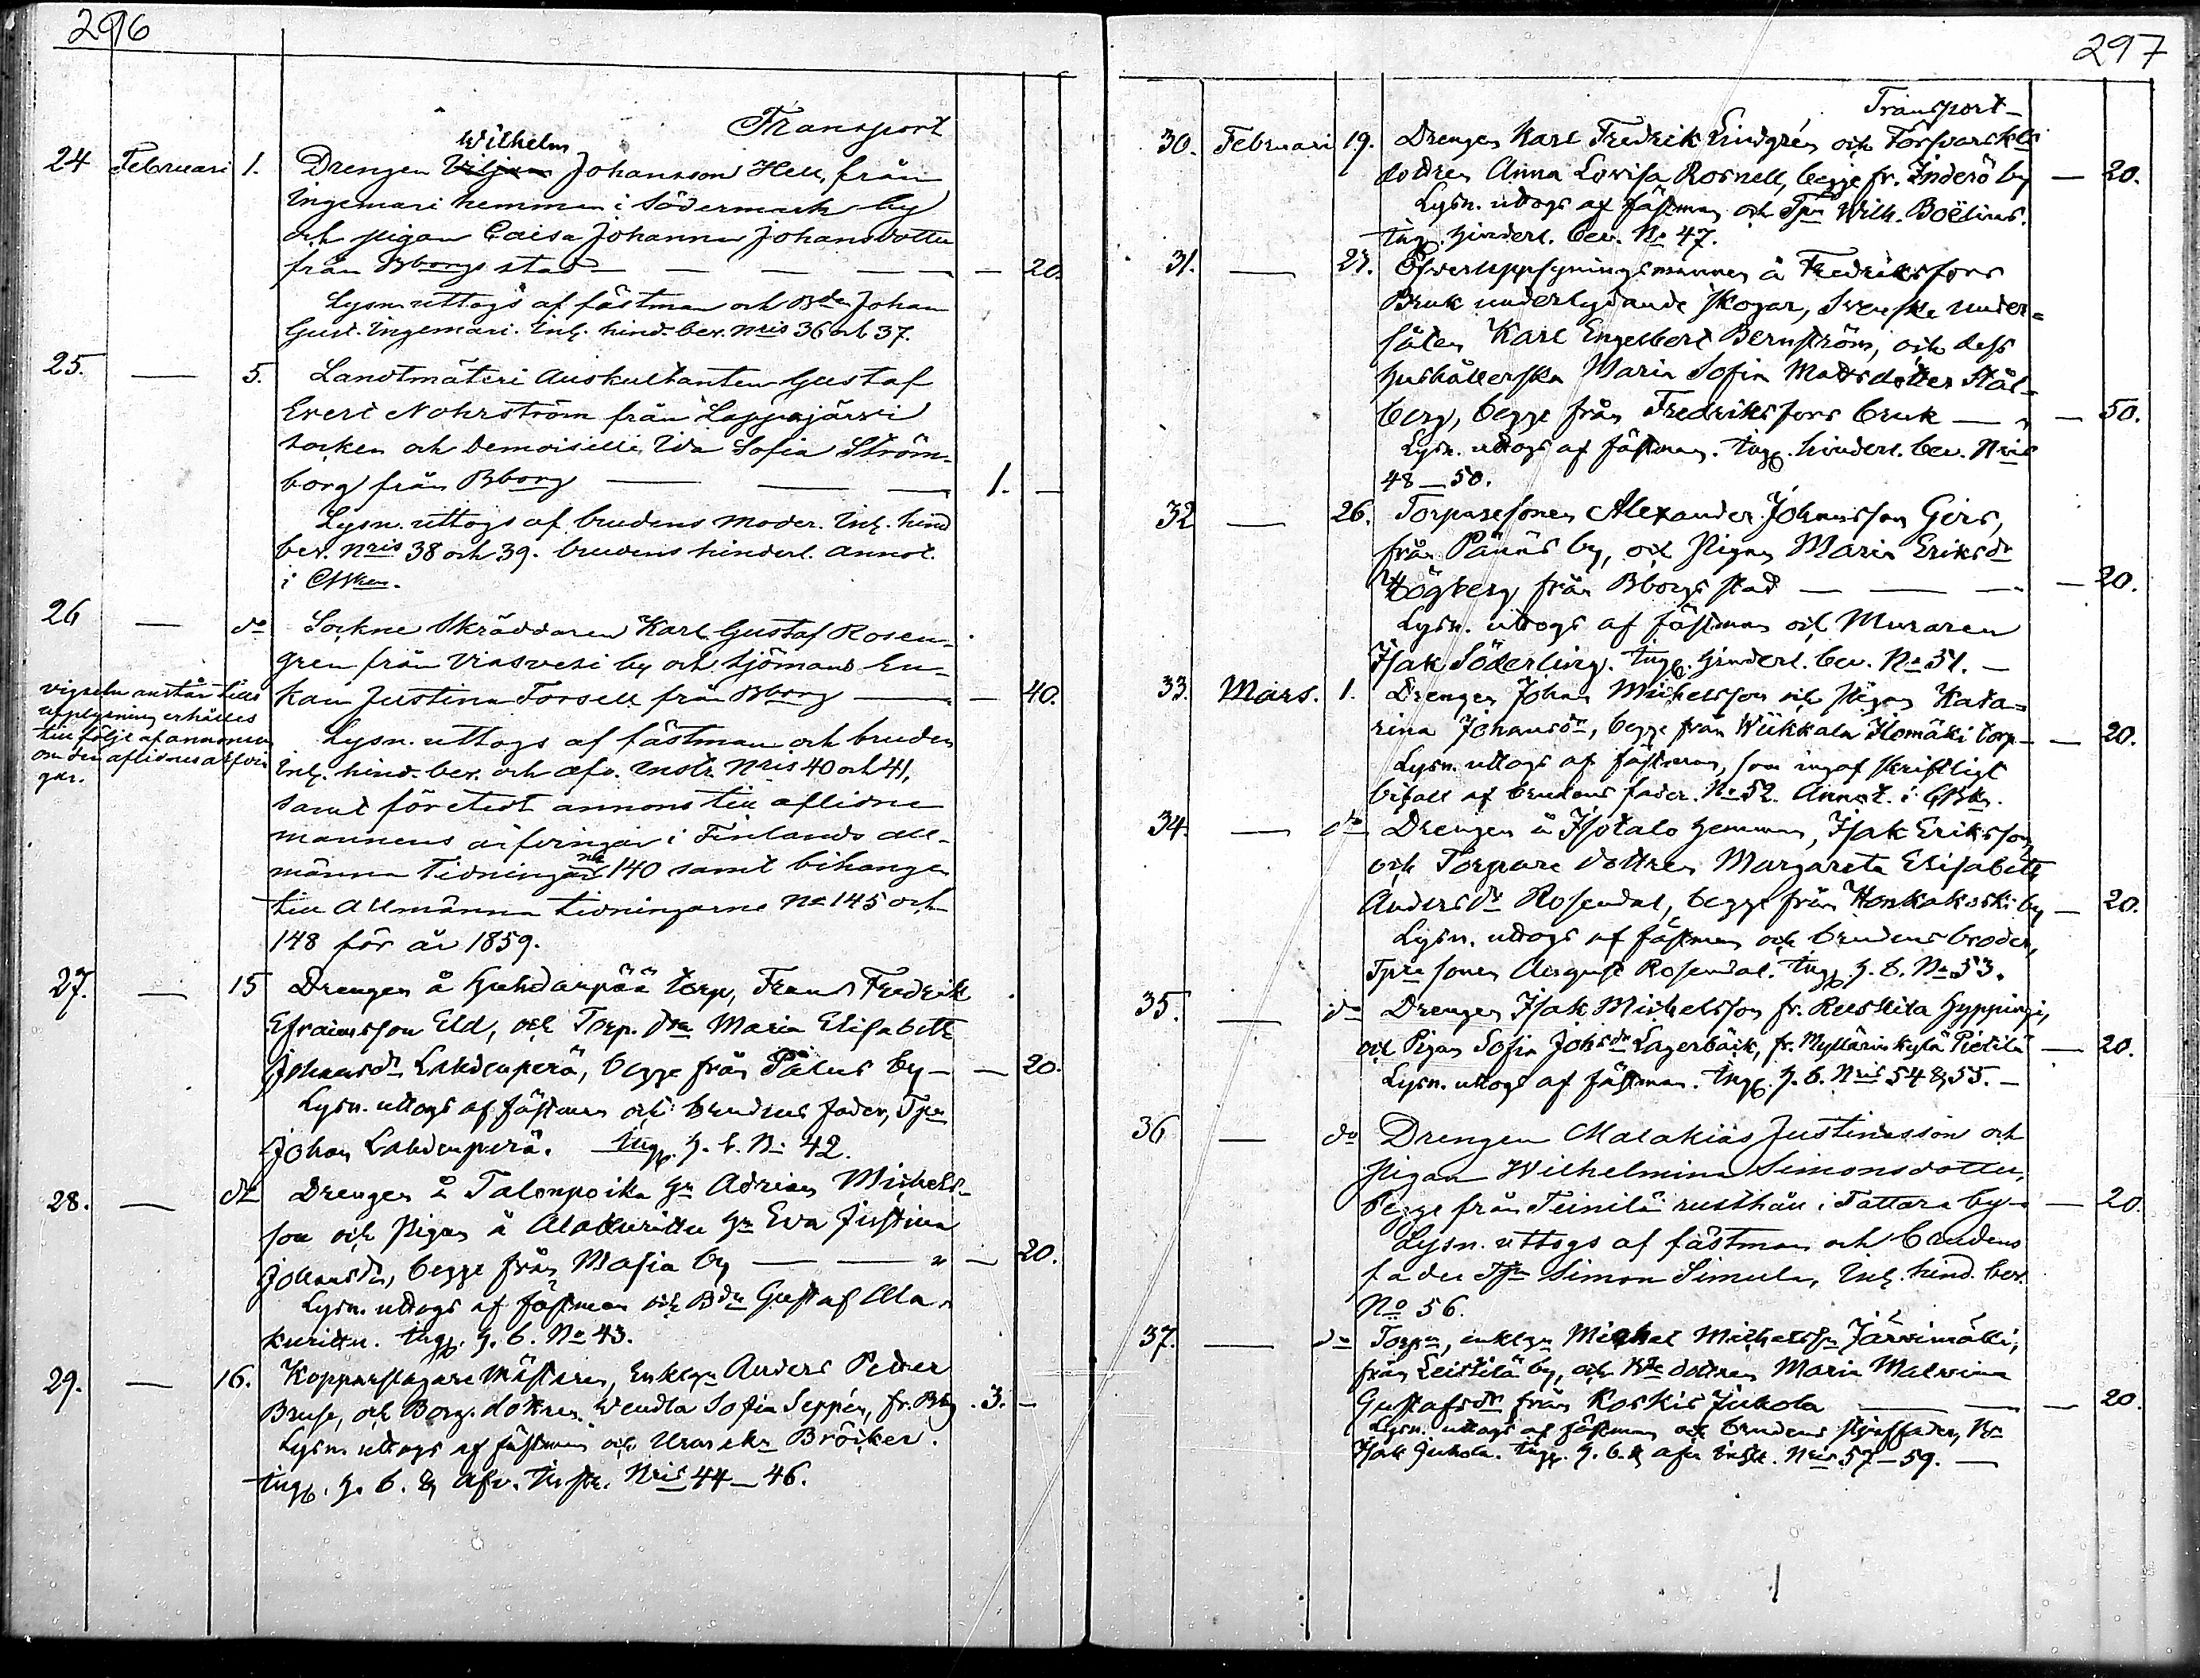 296
Transport
Wilhelm
24 Februari 1. Drengen Viljam Johansson Hell, från
Ingemari hemman i Södermark by
och pigan Caisa Johanna Johansdotter
från Bborgs stad — — — — — 20.
Lysn. uttogs af fästman och Bden Johan
Gust. Ingemari. Inl. hind. bev. Nris 36 och 37.
25. — 5. Landtmäteri Auskultanten Gustaf
Evert Nohrström från Lappajärvi
socken och Demoiselle Ida Sofia Ström-
borg från Bborg — — — 1. —
Lysn. uttogs af brudens moder. Inl. hind
bev. Nris 38 och 39. brudens hinderl. annot.
i
26 — do Sockne Skräddaren Karl Gustaf Rosen-
gren från Viasvesi by och Sjömans En-
kan Justina Forsell från Bborg — — 40.
vigseln anstår tills
upplysning erhålles
till följe af annonsen
om den aflidnes arfvin
gar.
Lysn. uttogs af fästman och bruden
Inl. hind. bev. och afv. instr. Nris 40 och 41,
samt företedt annons till aflidne
mannens arfvingar i Finlands all-
männa Tidningar no 140 samt bihangen
till Allmänna tidningarne No 145 och
148 för år 1859.
27. — 15 Drengen å Huhdanpää torp, Frans Fredrik
Efraimsson Eld, och Torp. dra Maria Elisabeth
Johansdr Lahdenperä, begge från Påhus by — — 20.
Lysn. uttogs af fästman och brudens fader, Tpn
Johan Lahdenperä. Ingg. h. b. No 42.
28. — do Drengen å Talonpoika hn Adrian Michels-
son och Pigan å Alakuritu hn Eva Justina
Johansdr, begge från Masia by — — — 20.
Lysn. uttogs af fästman och Bdn Gustaf Ala-
kuritu. Ingg. h. b. No 43.
29. — 16. Kopparslagare Mästaren, Enklgn Anders Petter
Bruse, och Borg. dottren Wendla Sofia Seppén, fr. Bbg. 3. —
Lysn. uttogs af fästman och Bröcker.
Ingg. h. b. & Afv. Instr. Nris 44—46.
297
Transport—
30. Februari 19. Drengen Karl Fredrik Lindgrén och Försvarskls
dottren Anna Lovisa Rosnell, begge fr. Inderö by — 20.
Lysn. uttogs af fästman och Tpn Wilh. Boëlius.
Ingg. hinderl. bev. No 47.
31. — 21. Öfveruppsyningsmannen å Fredriksfors
Bruk underlydande skogar, Svenske under-
såten Karl Engelbert Bernström, och dess
hushållerska Maria Sofia Mattsdotter Stål-
berg, begge från Fredriksfors bruk — — 50.
Lysn. uttogs af fästman. Ingg. hinderl. bev. Nris
48—50.
32 — 26. Torparesonen Alexander Johansson Girs,
från Pänäs by, och Pigan Maria Eriksdr
Högberg från Bborgs stad — — — 20.
Lysn. uttogs af fästman och Muraren
Isak Söderling. Ingg. hinderl. bev. No 51. —
33. Mars. 1. Drengen Johan Michelsson och Pigan Kata-
rina Johansdr, begge från Wiikkala Ilomäki torp — — 20.
Lysn. uttogs af fästman, som ingaf skriftligt
bifall af brudens fader. No 52. Annot. i
34. — do Drengen å Isotalo hemman, Isak Eriksson
och Torpare dottren Margareta Elisabeth
Andersdr Rosendal, begge från Honkakoski by — 20.
Lysn. uttogs af fästman och brudens broder,
Tpre sonen August Rosendal. Ingg. h. b. No 53.
35. — do Drengen Isak Michelsson fr. Ruskila Hyppingi,
och Pigan Sofia Johsdr Lagerbäck, fr. Myllärinkylä Pietilä — 20.
Lysn. uttogs af fästman. Ingg. h. b. Nris 54 & 55. —
36 — do Drengen Malakias Justinusson och
pigan Wilhelmina Simonsdotter,
begge från Teinilä rusthåll i Tattara by — — 20
Lysn. uttogs af fästman och brudens
fader Tpn Simon Simula, Inl. hind. bev.
No 56.
37. — do Torpn, enklgn Michel Michelsson Järvimälli,
från Leistilä by, och dottren Maria Malvina
Gustafsdr från Koskis Jukola — — — 20.
Lysn. uttogs af fästman och brudens styffader,
Isak Jukola. Ingg. h. b. & afv. instr. Nris 57—59. —